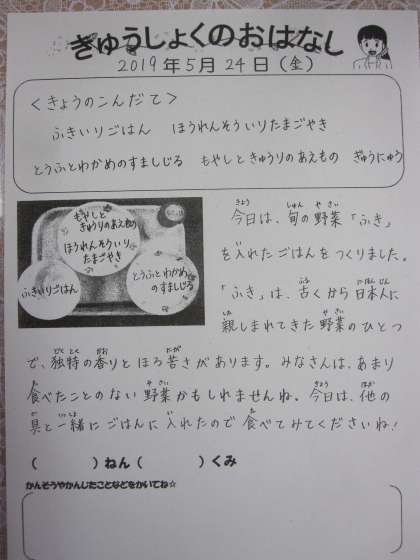 きゅうしょくのおはなし
2019年5月24日(金)
<きょうのこんだて>
ふきいりごはん ほうれんそういりたまごやき
とうふとわかめのすましじる もやしときゅうりのあえもの ぎゅうにゅう
もやしと
きゅうりのあえもの
ほうれんそういり
たまごやき
ふきいりごはん
とうふとわかめ
のすましじる
きょう しゅん やさい
今日は、旬の野菜「ふき」
を入れたごはんをつくりました。
ふる にほんじん
「ふき」は、古くから日本人に
した やさい
親しまれてきた野菜のひとつ
どくとく かお にが
で、独特の香りとほろ苦さがあります。みなさんは、あまり
た やさい きょう ほか
食べたことのない野菜かもしれませんね。今日は、他の
ぐ いっしょ い た
具と一緒にごはんに入れたので食べてみてくださいね!
( )ねん( )くみ
かんそうやかんじたことなどをかいてね☆